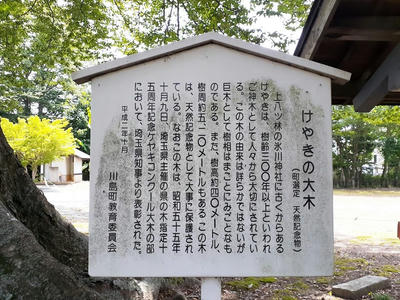 けやきの大木
（町選定 天然記念物）
上八ツ林の氷川神社に古くからある
けやきは、樹齢三〇〇年以上といわれ
ご神木として人々から大切にされてい
る。この木の由来は詳らかではないが
巨木として樹相はまことにみごとなも
のである。また、樹高約四〇メートル、
樹周約五・二〇メートルもあるこの木
は、天然記念物として大事に保護され
ている。なおこの木は、昭和五十五年
十月九日、埼玉県主催の県の木指定十
五周年記念ケヤキコンクール大木の部
において、埼玉県知事より表彰された。
平成二年十月
川島町教育委員会